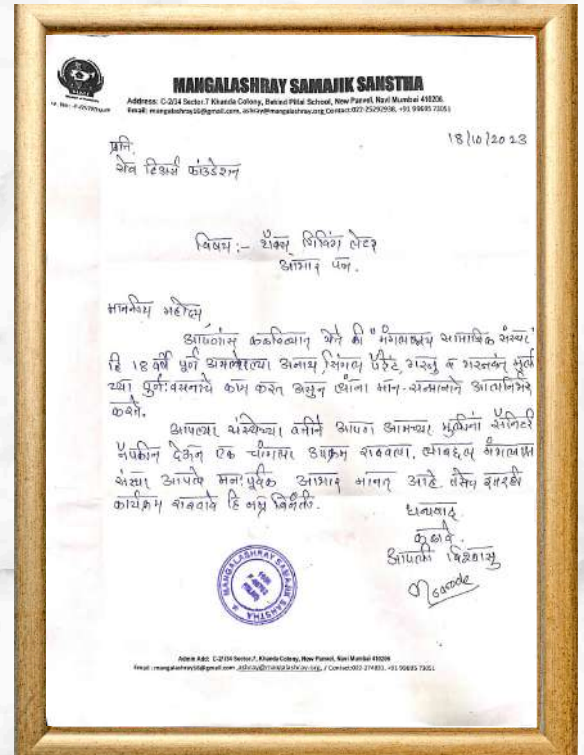 MANGALASHRAY SAMAJIK SANSTHA
Address: C-2/34 Sector.7 Khanda Colony, Behind Pillai School, New Panvel, Navi Mumbai 410206.
Email: mangalashray16@gmail.com, ashray@mangalashray.org, Contact:022-25292938, +91 99695 73051
18/10/2023
प्रति,
सेव टिअर्स फांउडेशन
विषय :- थँक्स गिविंग लेटर
आभार पत्र.
माननीय महोदय
आपणांस कळविण्यात येते की "मंगलाश्रय सामाजिक संस्था"
हि 18 वर्षे पुर्ण असलेल्या अनाथ, सिंगल पॅरेंट, गरजु व गरजवंत मुलीं
च्या पुर्नःवसनाचे काम करत असुन त्यांना मान-सन्मानाने आत्मनिर्भर
करते.
आपल्या संस्थेच्या वतीने आपण आमच्या मुलींना सॅनिटरी
नॅपकीन देऊन एक चांगला उपक्रम राबवला, त्याबद्दल मंगलाश्रय
संस्था आपले मनःपुर्वक आभार मानत आहे. तसेच इतरही
कार्यक्रम राबवावे हि नम्र विनंती.
धन्यवाद,
कळावे.
आपली विश्वासु
MANGALASHRAY SAMAJIK SANSTHA
Admin Add: C-2/34 Sector.7, Khanda Colony, New Panvel, Navi Mumbai 410206
Email : mangalashray16@gmail.com, ashray@mangalashray.org, / Contact:022-274893, +91 99695 73051